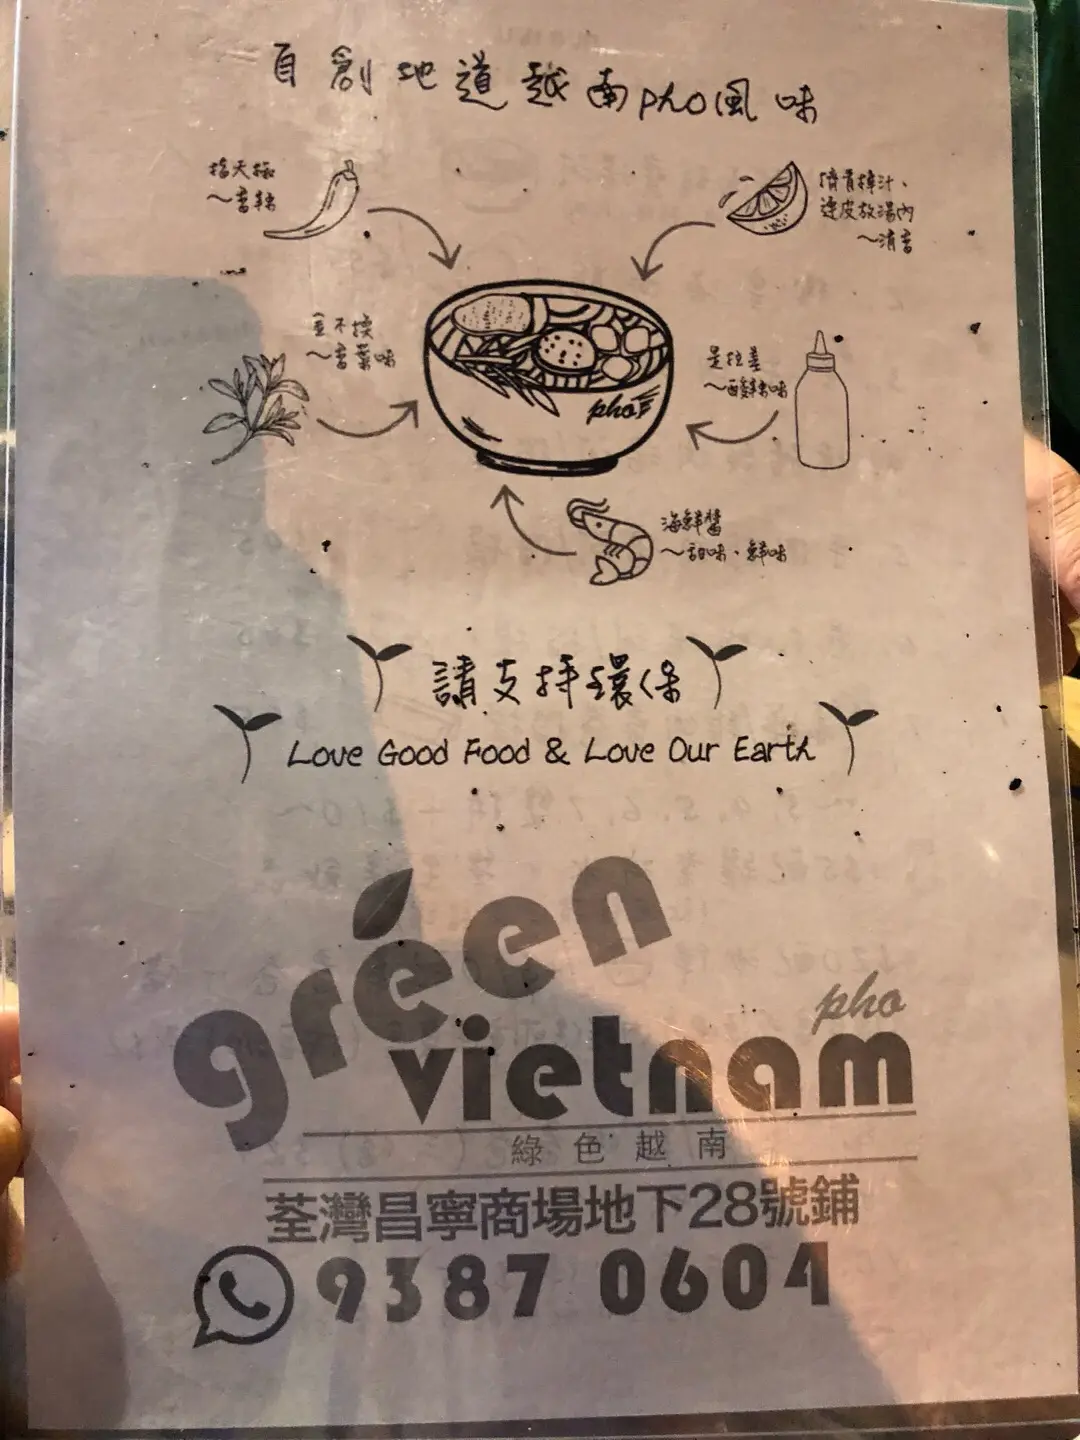 自創地道越南pho風味
指天椒
～香辣
擠青檸汁、
連皮放湯內
～清香
金不換
～香葉味
是拉差
～酸辣味
pho
海鮮醬
～甜味、鮮味
請支持環保
Love Good Food & Love Our Earth
green
pho
vietnam
綠色越南
荃灣昌寧商場地下28號鋪
9387 0604